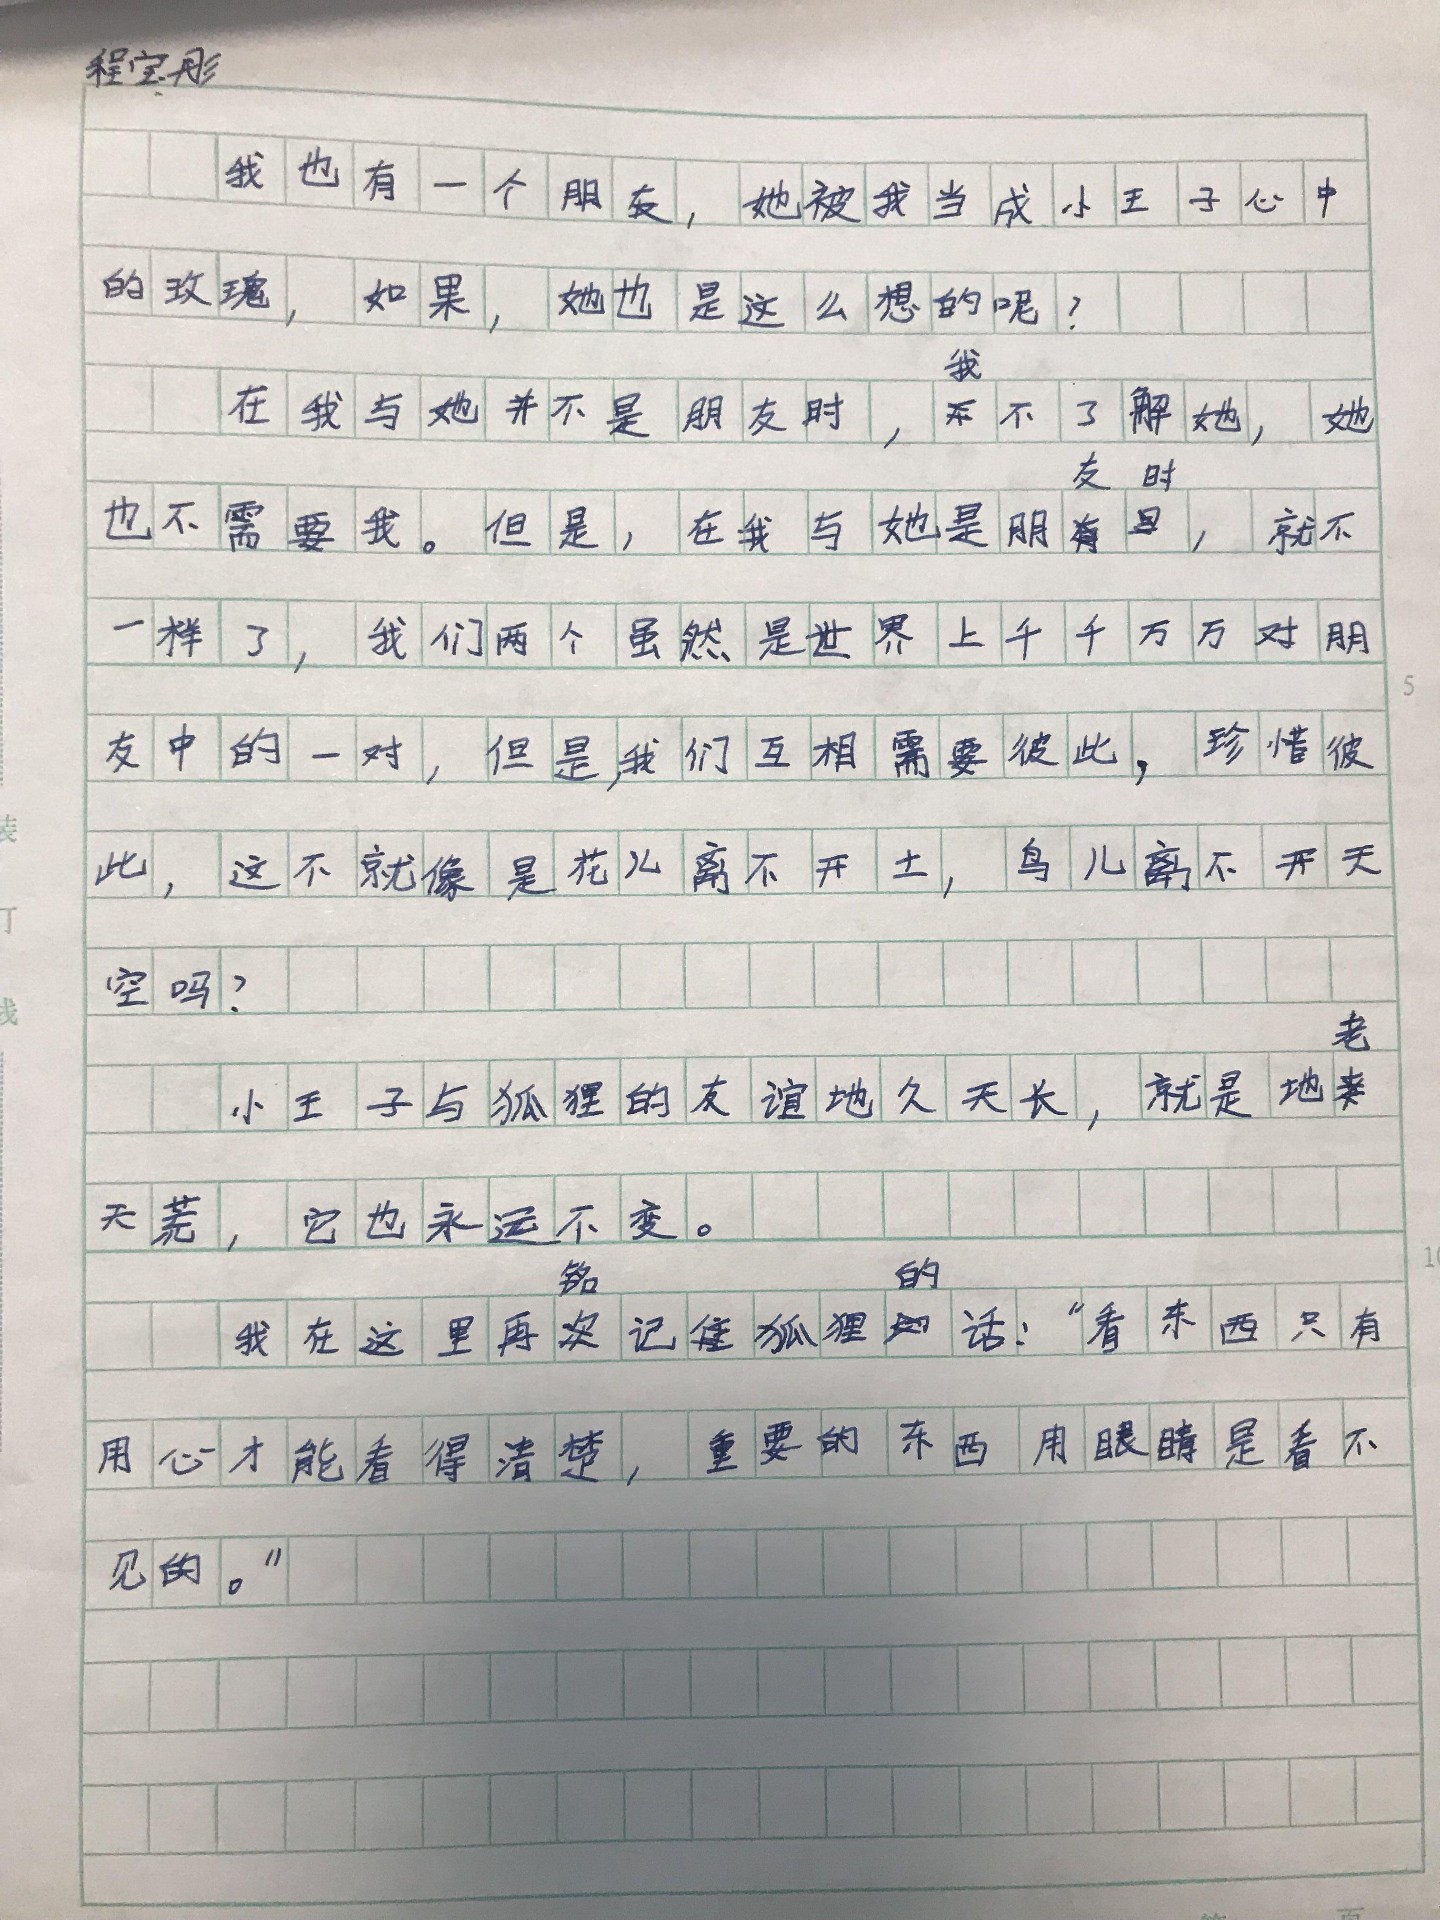 程宝彤
我也有一个朋友，她被我当成小王子心中
的玫瑰，如果，她也是这么想的呢？
在我与她并不是朋友时，我不了解她，她
也不需要我。但是，在我与她是朋友时，就不
一样了，我们两个虽然是世界上千千万万对朋
友中的一对，但是，我们互相需要彼此，珍惜彼
此，这不就像是花儿离不开土，鸟儿离不开天
空吗？
小王子与狐狸的友谊地久天长，就是地老
天荒，它也永远不变。
我在这里再次铭记狐狸的话：“看东西只有
用心才能看得清楚，重要的东西用眼睛是看不
见的。”
5
10
装
订
线